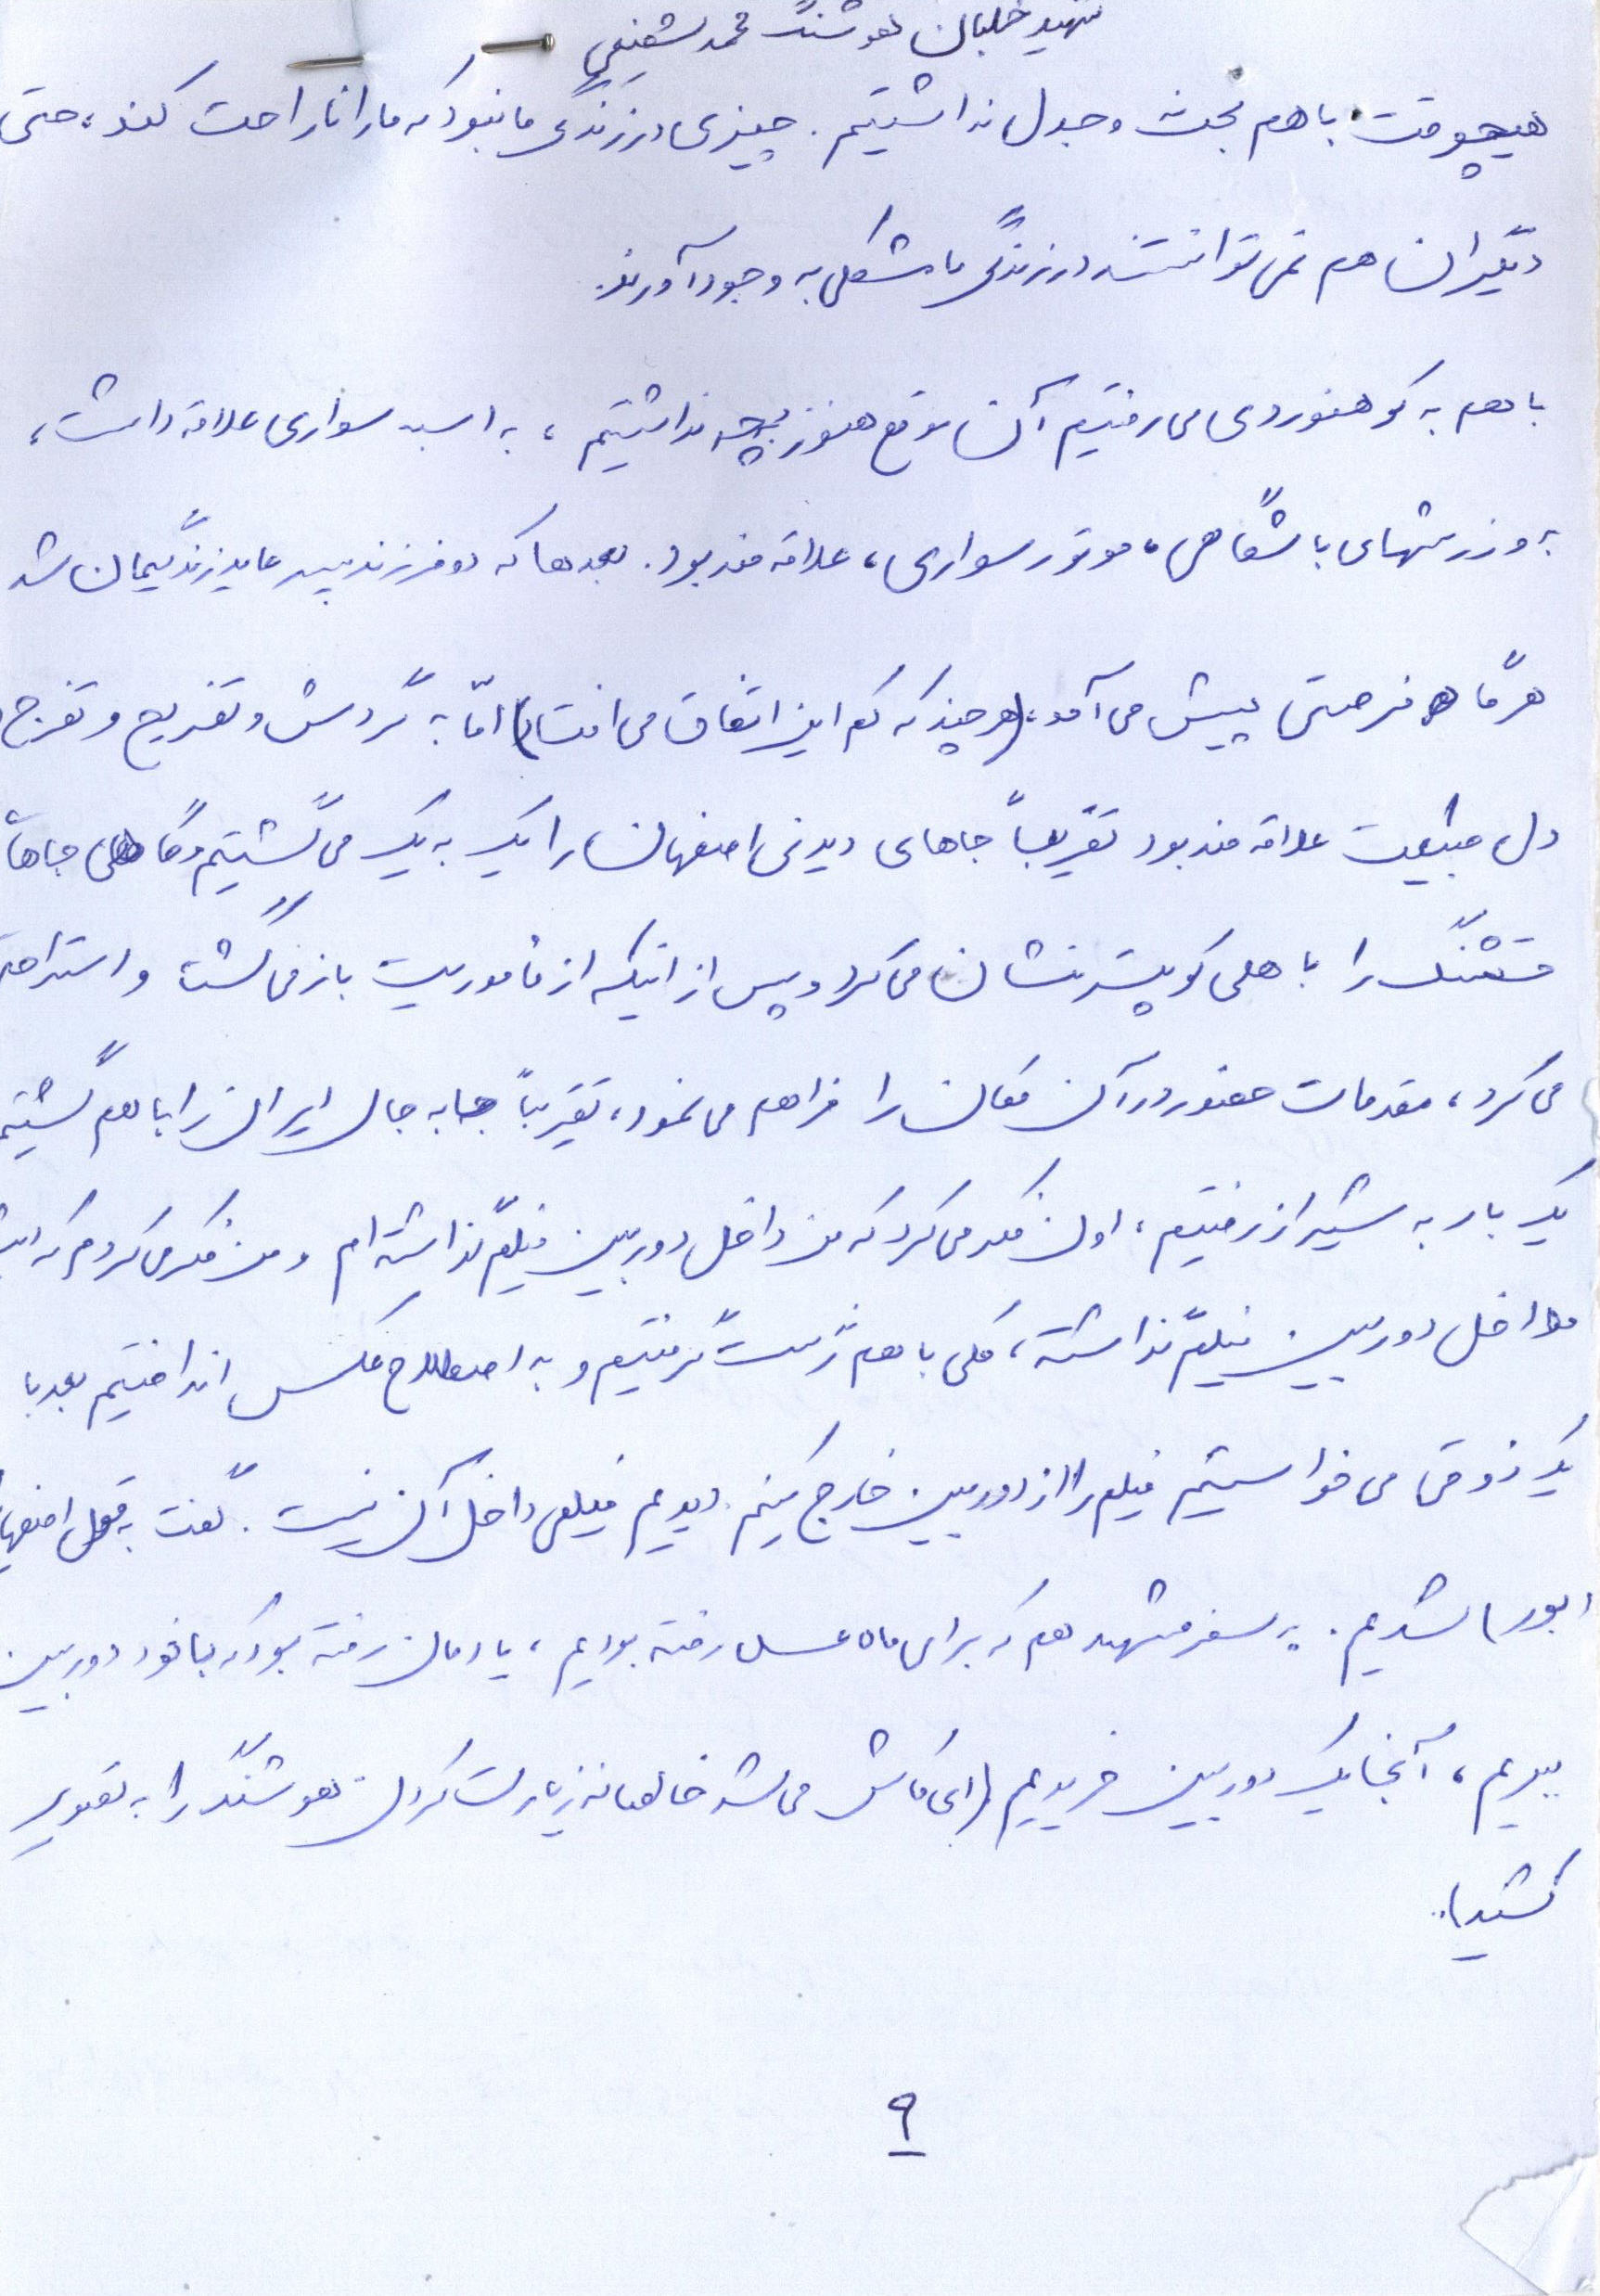 شهید خلبان هوشنگ محمد شفیعی
هیچوقت با هم بحث و جدل نداشتیم. چیزی در زندگی ما نبود که ما را ناراحت کند، حتی
دیگران هم نمی توانستند در زندگی ما مشکلی به وجود آورند.
با هم به کوهنوردی می رفتیم آن موقع هنوز بچه نداشتیم، به اسب سواری علاقه داشت،
به ورزشهای باشگاهی، موتور سواری، علاقه مند بود. بعدها که دو فرزند پسر عاید زندگیمان شد
هرگاه فرصتی پیش می آمد، (هر چند که کم این اتفاق می افتاد) امّا به گردش و تفریح و تفرج
دل طبیعت علاقه مند بود تقریباً جاهای دیدنی اصفهان را یک به یک می گشتیم و گاهی جاهای
قشنگ را با هلی کوپتر نشان می کرد و پس از اینکه از مأموریت باز می گشت و استراحت
می کرد، مقدمات حضور در آن مکان را فراهم می نمود، تقریباً جا به جای ایران را با هم گشتیم
یک بار به شیراز رفتیم، اون فکر می کرد که من داخل دوربین فیلم گذاشته ام و من فکر می کردم که
داخل دوربین فیلم گذاشته، کلی با هم ژست گرفتیم و به اصطلاح عکس انداختیم بعد با
یک ذوقی می خواستیم فیلم را از دوربین خارج کنیم. دیدیم فیلمی داخل آن نیست. گفت به قول
شدیم. به سفر مشهد هم که برای ماه عسل رفته بودیم، یادمان رفته بود که با خود دوربین
ببریم، آنجا یک دوربین خریدیم (ای کاش می شد خالصانه زیارت کردن هوشنگ را به تصویر
کشید)..
۹